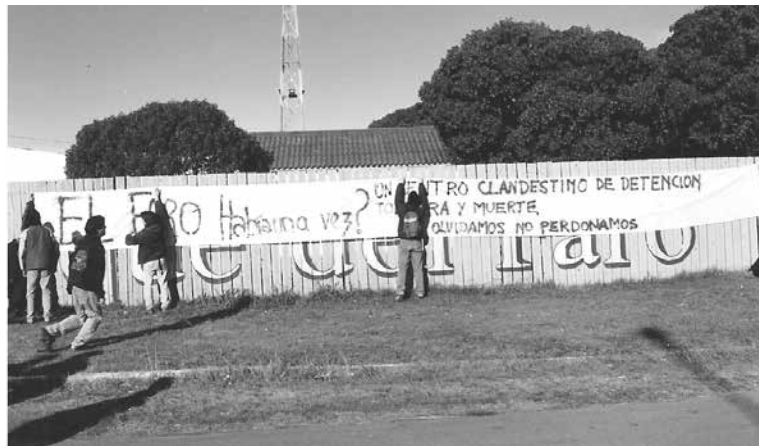 EL FARO Había una vez?
UN CENTRO CLANDESTINO DE DETENCION
TORTURA Y MUERTE,
OLVIDAMOS NO PERDONAMOS
del Faro